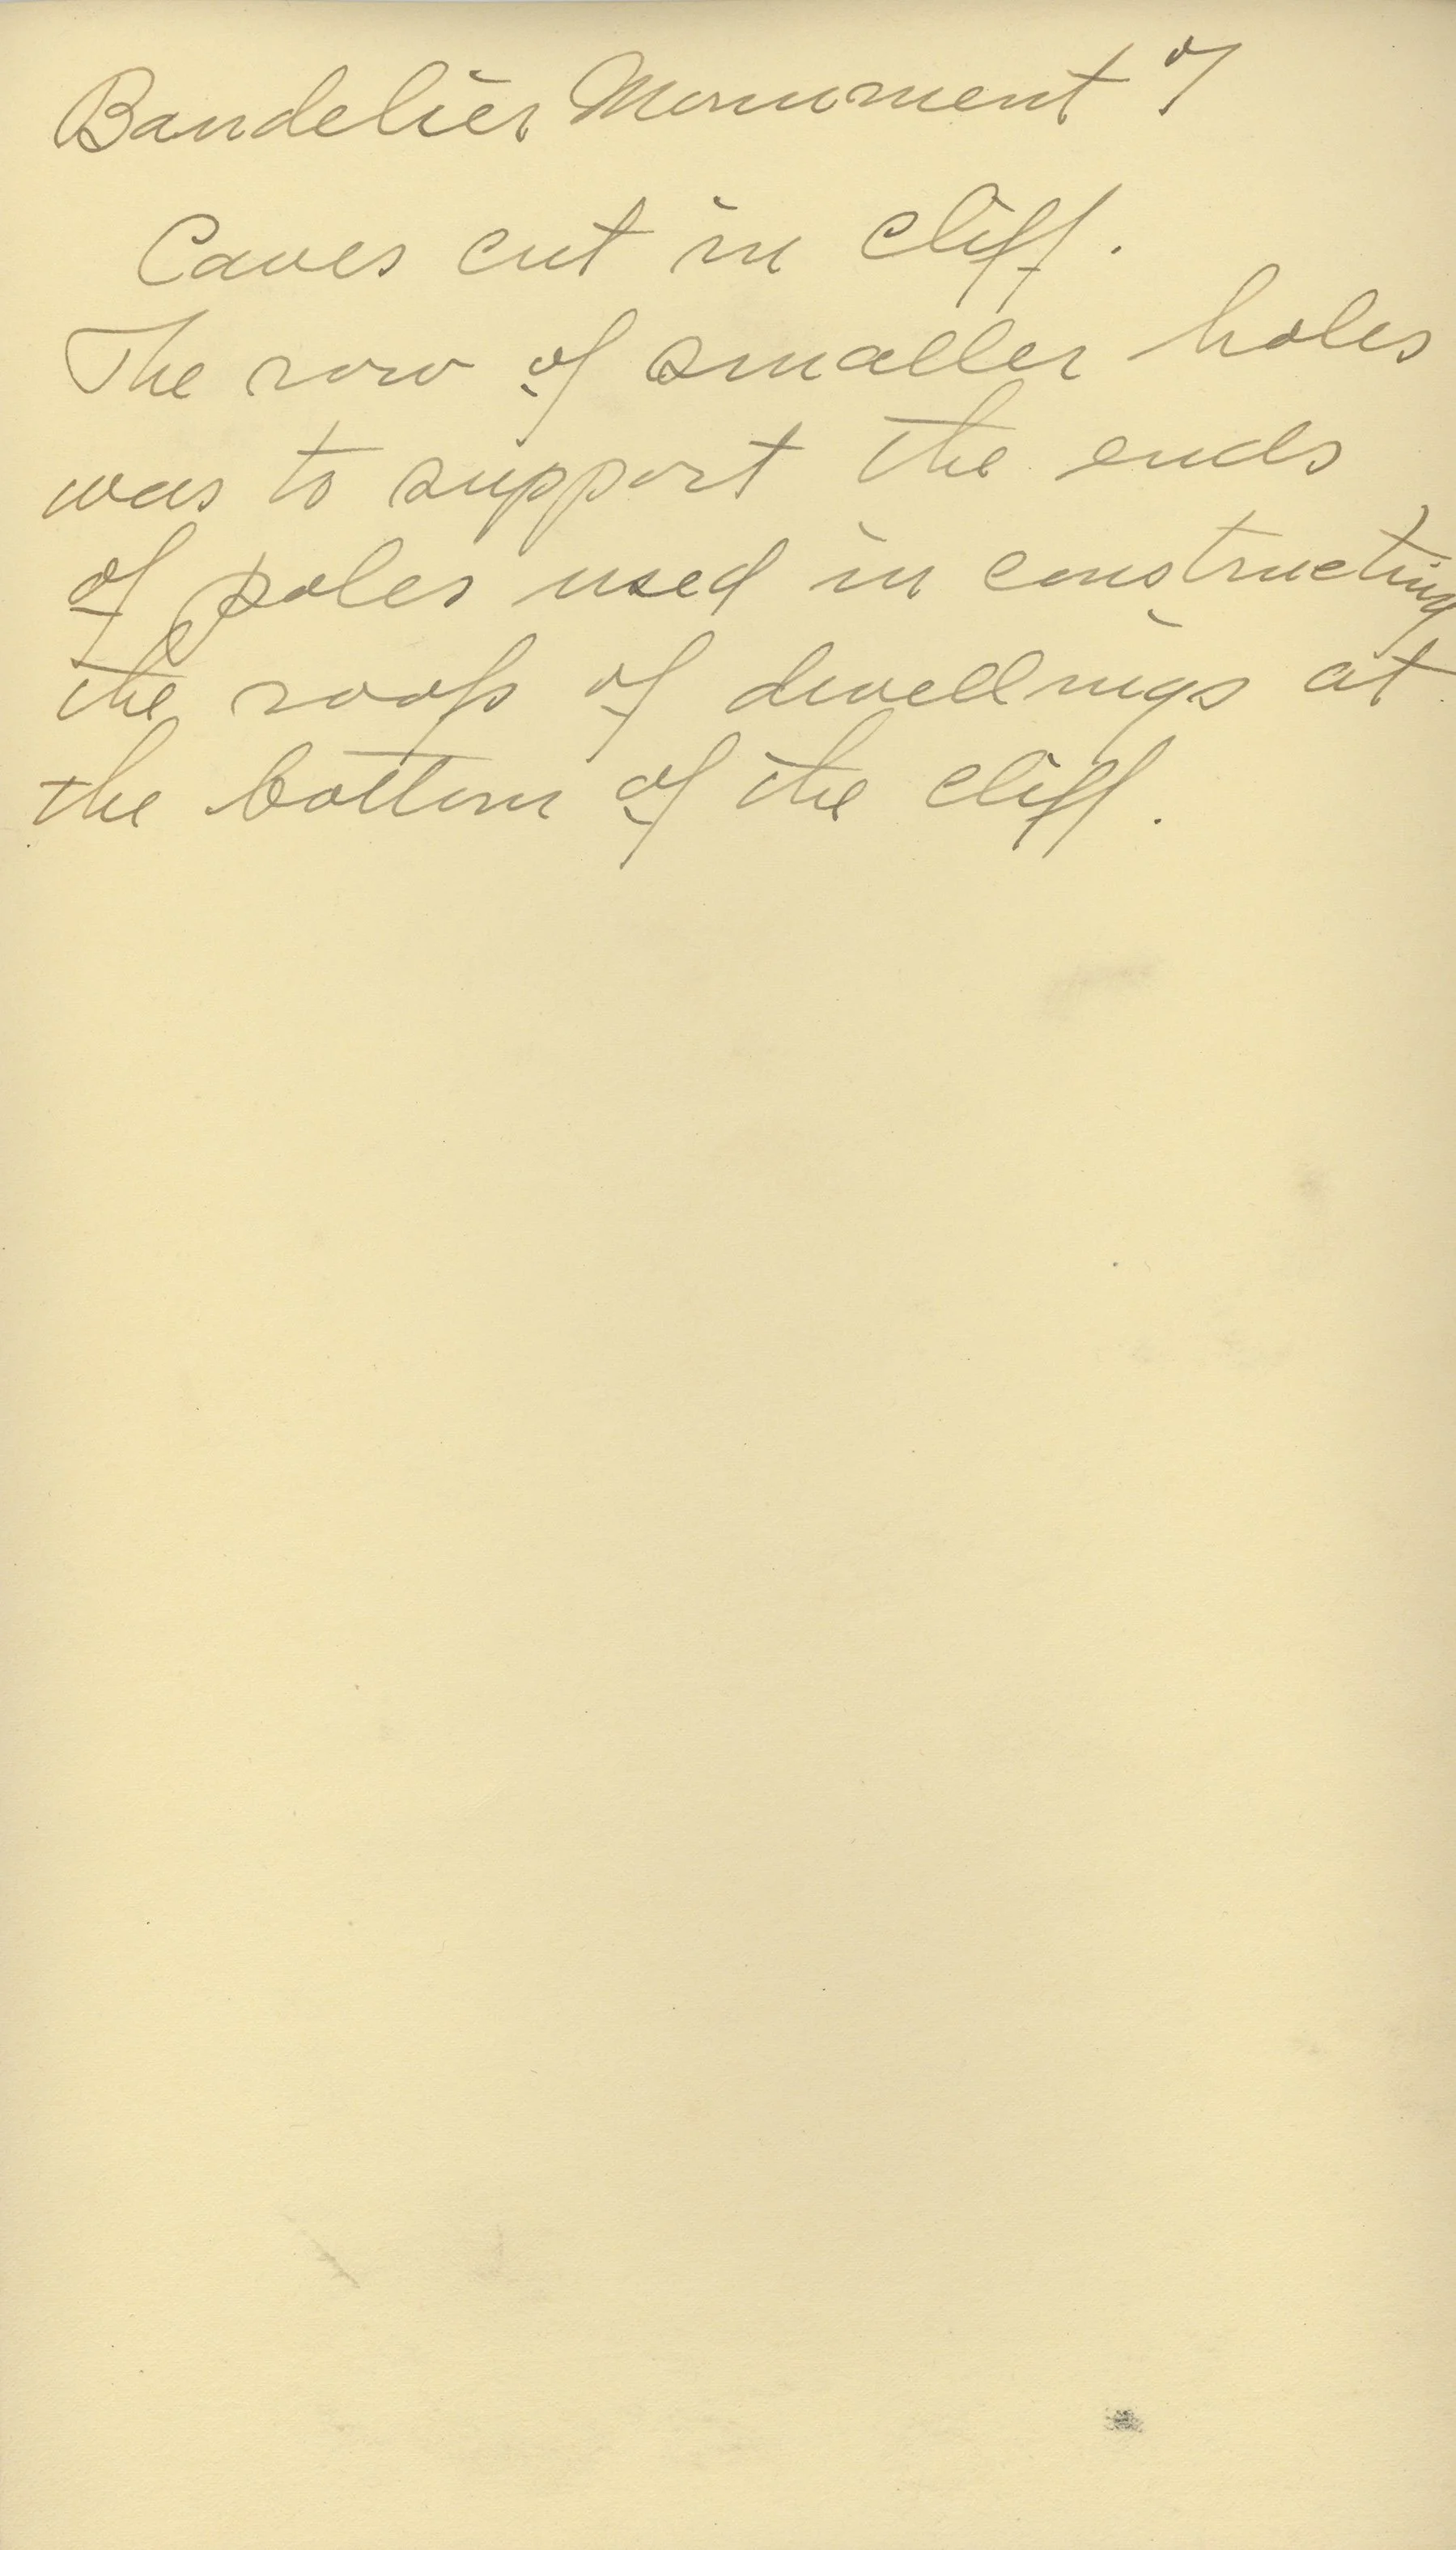 Bandelier Monument
Caves cut in cliff.
The row of smaller holes
was to support the ends
of poles used in constructing
the roofs of dwellings at
the bottom of the cliff.